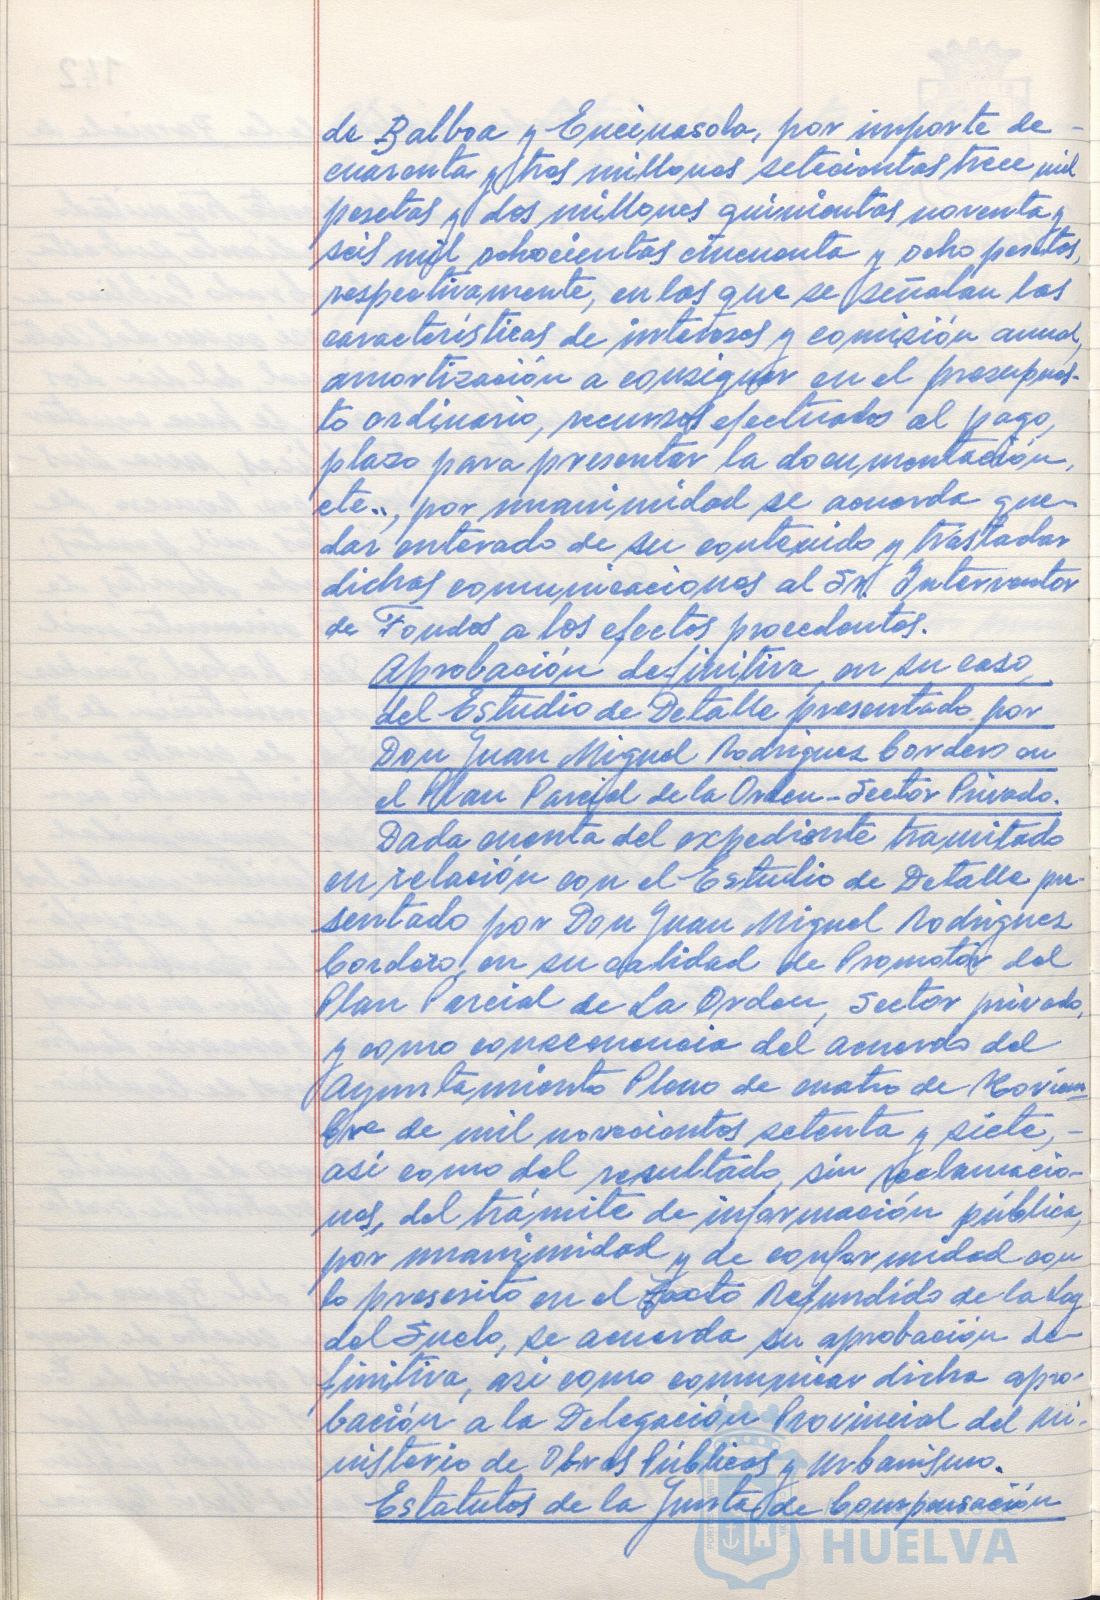 de Balboa y Encinasola, por importe de -
cuarenta y tres millones setecientas trece mil
pesetas y dos millones quinientas noventa y
seis mil ochocientas cincuenta y ocho pesetas,
respectivamente, en las que se señalan las
características de intereses y comisión anual,
amortización a consignar en el presupues-
to ordinario, recursos efectuados al pago,
plazo para presentar la documentación,
etc.., por unanimidad se acuerda que-
dar enterado de su contenido y trasladar
dichas comunicaciones al Sr. Interventor
de Fondos a los efectos procedentes.
Aprobación definitiva, en su caso,
del Estudio de Detalle presentado por
Don Juan Miguel Rodriguez Cordero en
el Plan Parcial de la Orden - Sector Privado.
Dada cuenta del expediente tramitado
en relación con el Estudio de Detalle pre-
sentado por Don Juan Miguel Rodriguez
Cordero, en su calidad de Promotor del
Plan Parcial de La Orden, Sector privado,
y como consecuencia del acuerdo del
Ayuntamiento Pleno de cuatro de Noviem-
bre de mil novecientos setenta y siete, -
así como del resultado, sin reclamacio-
nes, del trámite de información pública,
por unanimidad y de conformidad con
lo prescrito en el Texto Refundido de la Ley
del Suelo, se acuerda su aprobación de-
finitiva, así como comunicar dicha apro-
bación a la Delegación Provincial del Mi-
nisterio de Obras Públicas y Urbanismo.
Estatutos de la Junta de Compensación
HUELVA